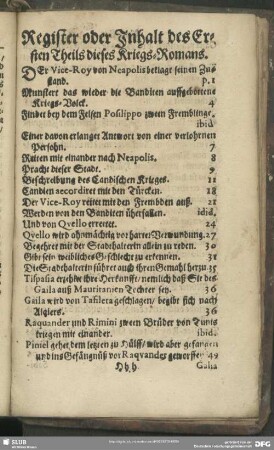 Register oder Inhalt des Er-
sten Theils dieses Kriegs-Romans.
DEr Vice-Roy von Neapolis beklagt seinen Zu-
stand. p. 1
Munstert das wieder die Banditen auffgebottene
Kriegs-Volck. 4
Findet bey dem Felsen Posilippo zween Frembdlinge.
ibid
Einer davon erlanget Antwort von einer verlohrnen
Persohn. 7
Reiten mit einander nach Neapolis. 8
Pracht dieser Stadt. 9
Beschreibung des Candischen Krieges. 11
Candien accordiret mit den Türcken. 18
Der Vice-Roy reitet mit den Frembden auß. 21
Werden von den Banditen überfallen. idid.
Und von Qvello errettet. 24
Qvello wird ohnmächtig vor harter Verwundung. 27
Begehret mit der Stadthalterin allein zu reden. 30
Gibt sein weibliches Geschlecht zu erkennen. 31
Die Stadthalterin führet auch ihren Gemahl herzu. 35
Tispasia erzehlet ihre Herkunfft/ nemlich daß Sie des
Gaila auß Mauritanien Tochter sey. 36
Gaila wird von Tafilera geschlagen/ begibt sich nach
Algiers. 36
Raquander und Rimini zween Brüder von Tunis
kriegen mit einander. ibid.
Piniel gehet dem letzten zu Hülff/ wird aber gefangen
und ins Gefängnüß vor Raqvander geworffen 49
Hhh Gaila
SLUB